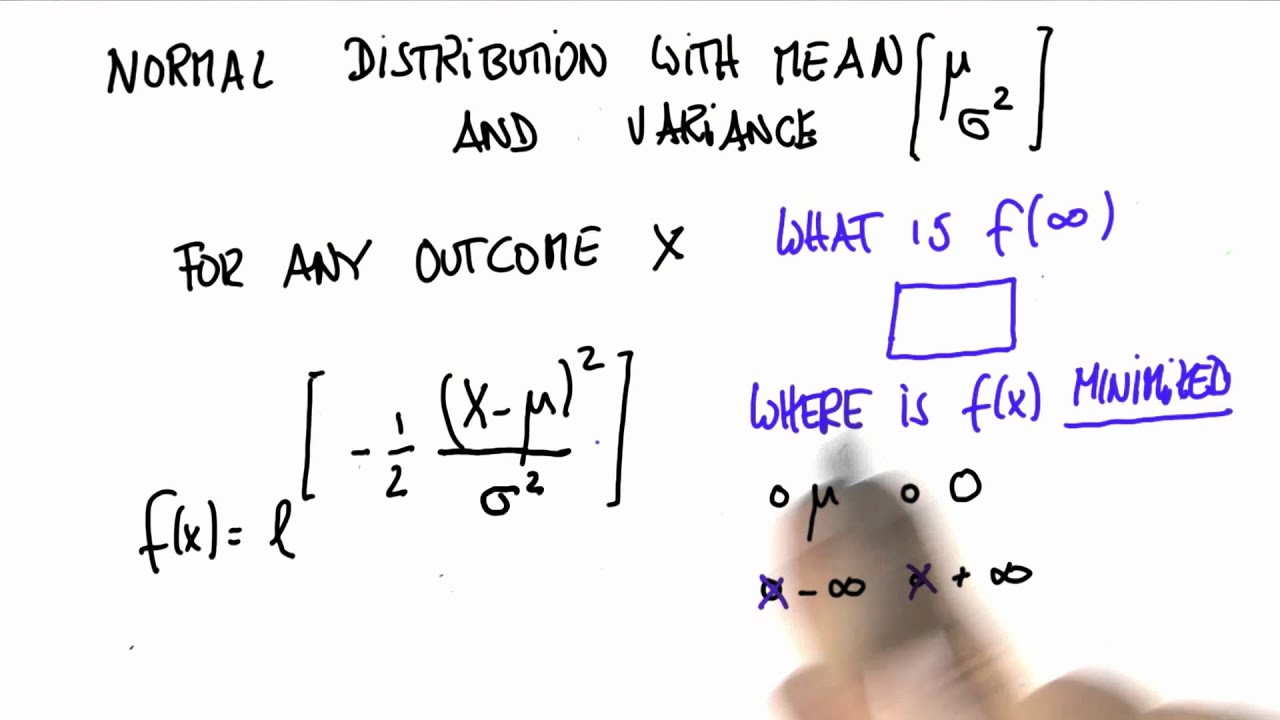 NORMAL DISTRIBUTION WITH MEAN [μ
AND VARIANCE σ²]
FOR ANY OUTCOME X
f(x) = e^[-1/2 (X-μ)²/σ²]
WHAT IS f(∞)
WHERE IS f(x) MINIMIZED
o μ o 0
x -∞ x +∞